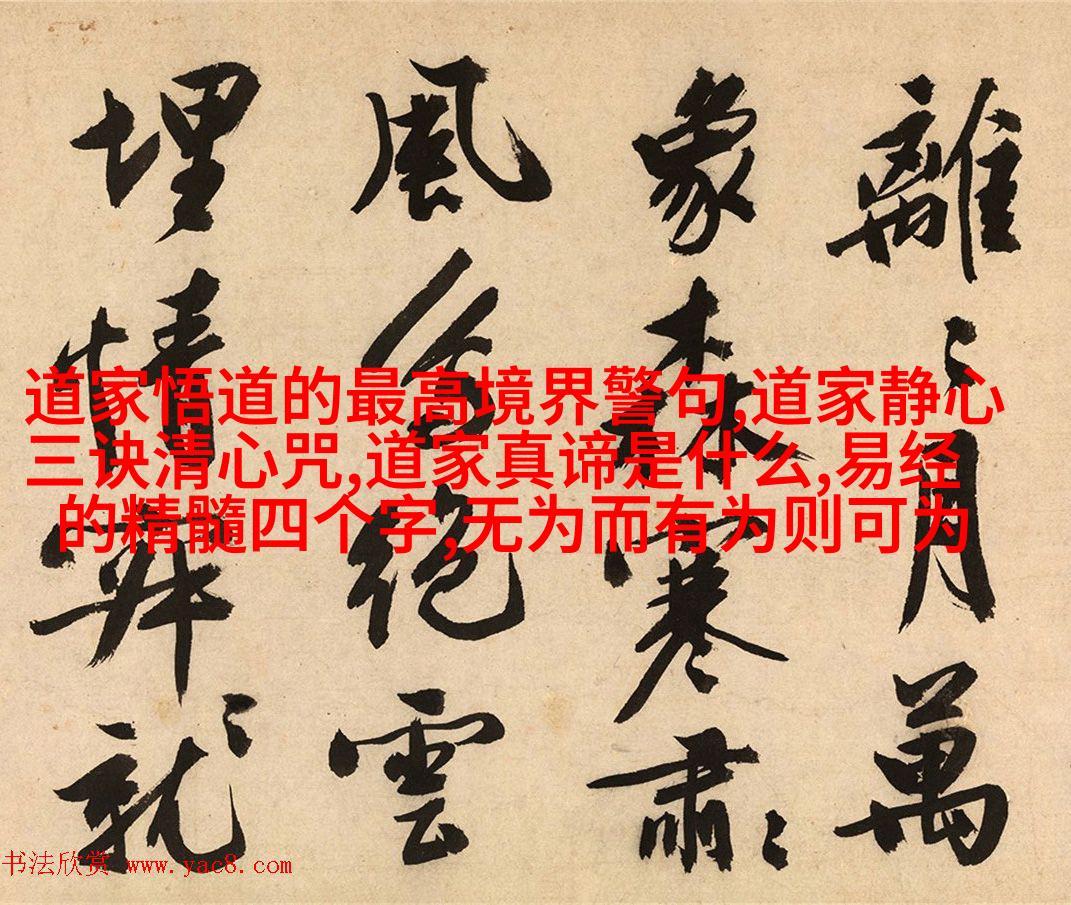 離〻月萬
象森寒肅〻
風絕雲
埋情就〻
道家悟道的最高境界警句,道家静心
三诀清心咒,道家真谛是什么,易经
的精髓四个字,无为而有为则可为
书法欣赏 www.yac8.com